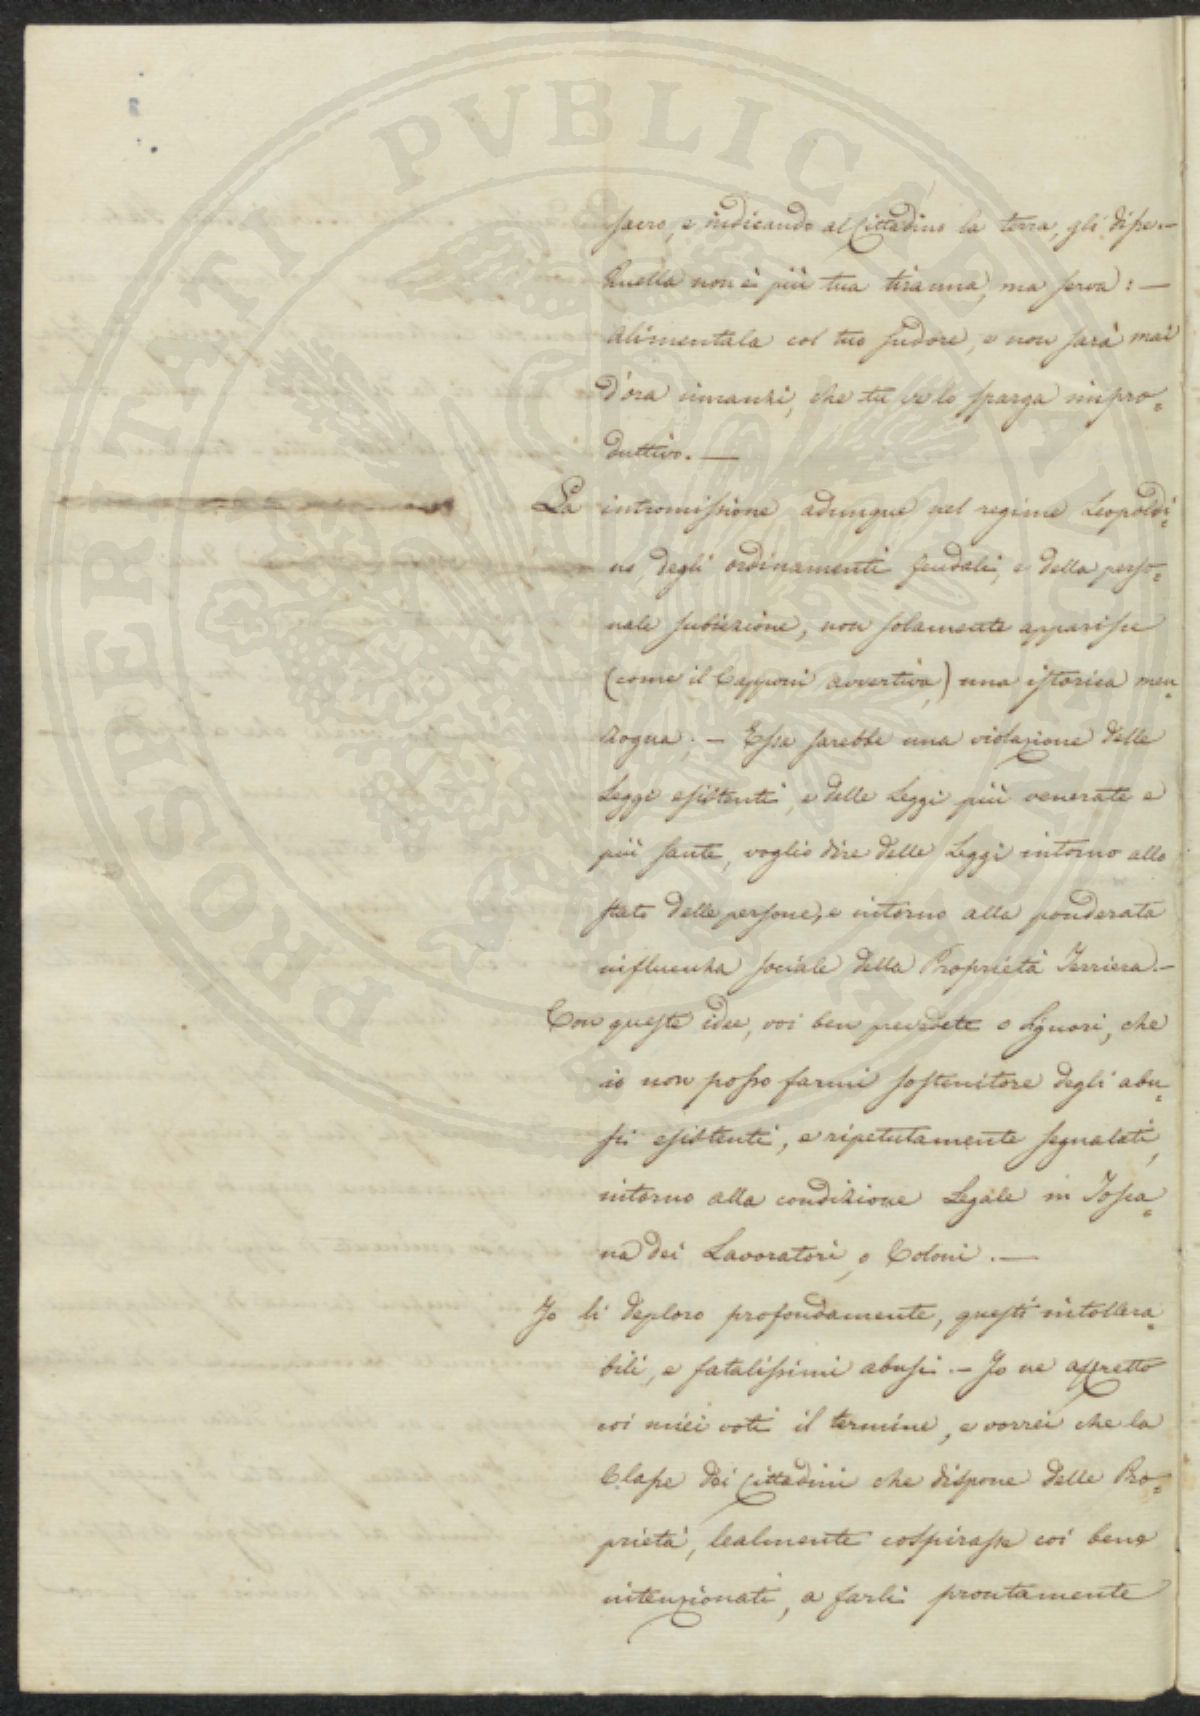 PROSPERITATI PUBLICAE AUGENDAE
sacro, e indicando al Cittadino la terra, gli disse. —
Quella non è più tua tiranna, ma serva: —
alimentala col tuo sudore, e non sarà mai
d'ora innanzi, che tu ve lo sparga impro=
duttivo. —
La intromissione adunque nel regime Leopoldi=
no, degli ordinamenti feudali, e della perso=
nale subiezione, non solamente apparisce
(come il Capponi avvertiva,) una istorica men=
zogna; — Essa sarebbe una violazione delle
Leggi esistenti, e delle Leggi più venerate e
più sante, voglio dire delle Leggi intorno allo
stato delle persone, e intorno alla ponderata
influenza sociale della Proprietà Terriera. —
Con queste idee, voi ben prevedete o Signori, che
io non posso farmi sostenitore degli abu=
si esistenti, e ripetutamente segnalati,
intorno alla condizione Legale in Tosca=
na dei Lavoratori, o Coloni. —
Io li deploro profondamente, questi intollera=
bili, e fatalissimi abusi. — Io ne affretto
coi miei voti il termine, e vorrei che la
Classe dei Cittadini che dispone delle Pro=
prietà, lealmente cospirasse coi bene
intenzionati, a farli prontamente